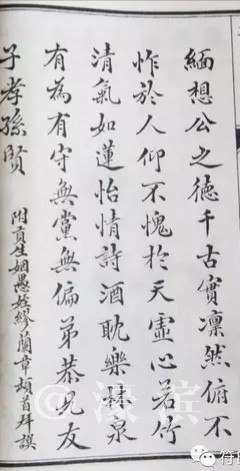 緬想公之德千古實凜然俯不
怍於人仰不愧於天虛心若竹
清氣如蓮怡情詩酒耽樂林泉
有為有守無黨無偏弟恭兄友
子孝孫賢
附貢生姻愚姪繆蘭章頓首拜譔
@濠滨